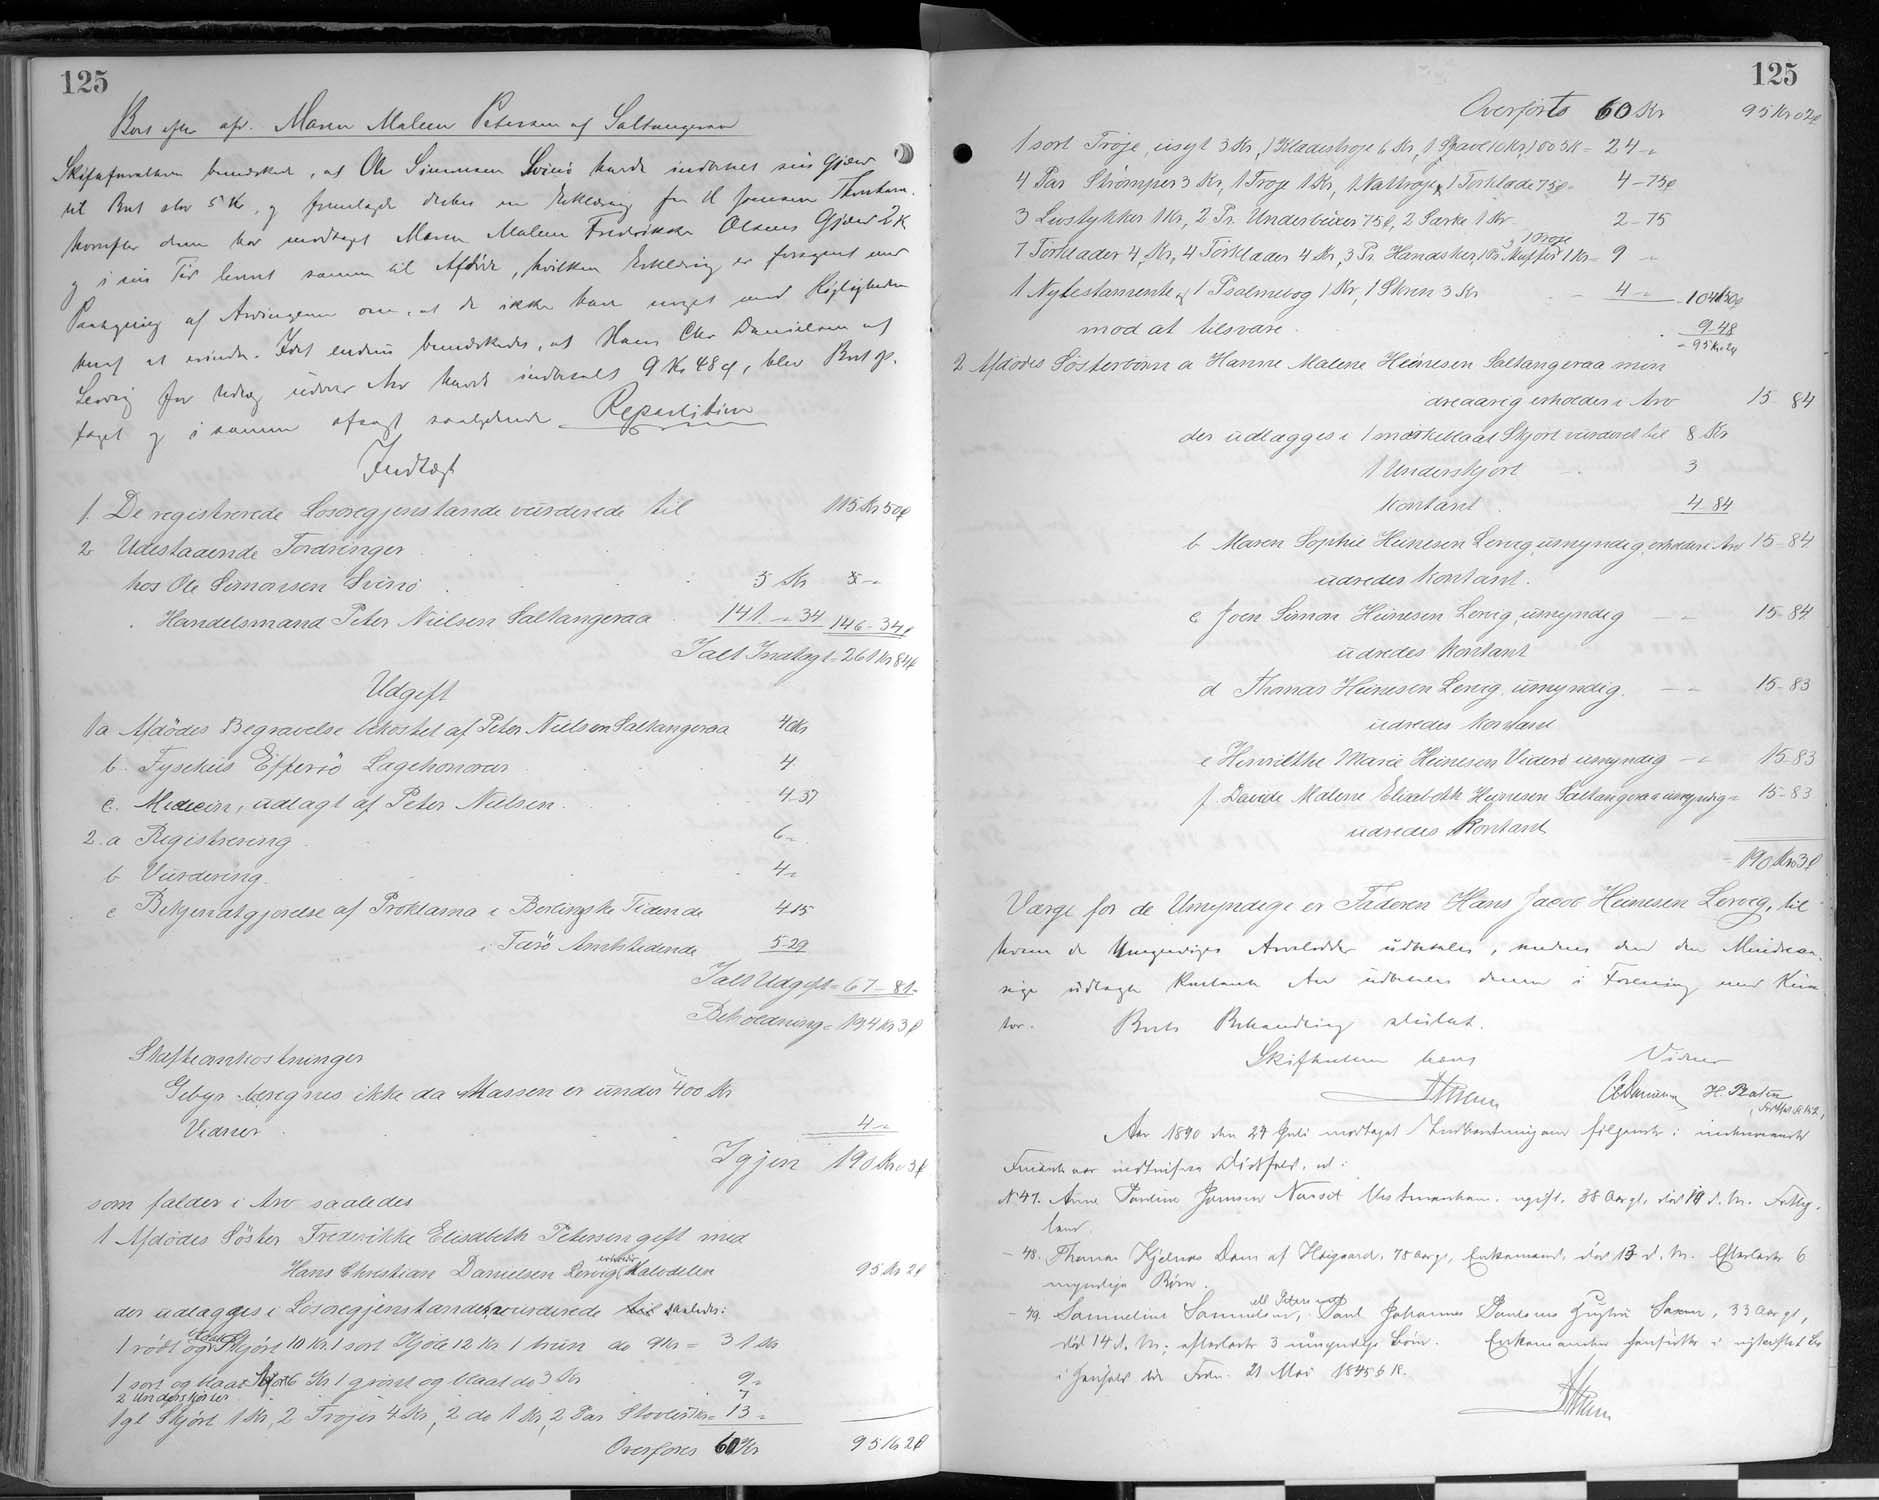 125
Boet efter afd. Maren Malene Petersen af Saltangeraa
Skifteforvalteren bemærkede, at Ole Simonsen Svinö havde indbetalt sin Gjæld
til Boet stor 5 Kr, og fremlagde derhos en Erklæring fra H Joensen Thorshavn.
hvorefter denne har modtaget Maren Malene Fredrikke Olsens Gjæld 2 K
og i sin Tid leveret samme til Afdöde, hvilken Erklæring er forsynet med
Paategning af Arvingerne om, at de ikke have noget mod Rigtigheden
heraf at erindre. Idet endnu bemærkedes, at Hans Chr Danielsen af
Lervig for Udlæg udover Arv havde indbetalt 9 Kr 48 ø, blev Boet op-
taget og i samme afsagt saalydende Repartition
Indtægt
1. De registrerede Lösöregjenstande vurderede til 115 Kr 50 ø
2 Udestaaende Fordringer
hos Ole Simonsen Svinö 5 Kr 5 "
Handelsmand Peter Nielsen Saltangeraa 141 " 34 146 - 34 ø
Ialt Indtægt = 261 Kr 84 ø
Udgift
1a Afdödes Begravelse bekostet af Peter Nielsen Saltangeraa 40 Kr
b. Fysikus Effersö Lægehonorar 4
c. Medicin, udlagt af Peter Nielsen. 4-37
2. a Registrering 6 "
b Vurdering. 4 "
c Bekjendtgjørelse af Proklama i Berlingske Tidende 4 15
i Færö Amtstidende 5-29
Ialt Udgift = 67 - 81
Beholdning = 194 Kr 3 ø
Skifteomkostninger
Gebyr beregnes ikke da Massen er under 400 Kr
Vidner 4 "
Igjen 190 Kr 03 ø
som falder i Arv saaledes
1 Afdödes Söster Frederikke Elisabeth Petersen gift med
Hans Christian Danielsen Lervig erholder Halvdelen 95 Kr 2 ø
der udlægges i Lösöregjenstande, vurderede til saaledes:
1 rödt og Skjört 10 Kr. 1 sort Kjole 12 Kr 1 brun do 9 Kr = 31 Kr
1 sort og blaat Skjört 6 Kr 1 grönt og blaat do 3 Kr 9 "
2 Underskjörter 7
1 gl Skjört 1 Kr, 2 Tröjer 4 Kr, 2 do 1 Kr, 2 Par Stövler 7 Kr = 13 "
Overföres 60 Kr 95 Kr 2 ø
125
Overförts 60 Kr 95 Kr 02 ø
1 sort Tröje, usyt 3 Kr, 1 Klædestroje 6 Kr, 1 10 Kr, 1 do 5 K = 24 "
4 Par Strömper 3 Kr, 1 Troje 1 Kr, 1 Nattroje, 1 Törklæde 75 ø = 4 - 75 ø
3 Livstykker 1 Kr, 2 Pr. Underbuxer 75 ø, 2 Særke 1 Kr 2 - 75
1 Troje
7 Törklæder 4 Kr, 4 Törklæder 4 Kr, 3 Pr. Handsker, 1 Pr Muffer 1 Kr = 9 "
1 Nytestamente og 1 Psalmebog 1 Kr, 1 Skrin 3 Kr 4 " 104 Kr 50 ø
mod at tilsvare 9-48
= 95 Kr 2 ø
2 Afdödes Sösterbörn a Hanne Malene Heinesen Saltangeraa min
dreaarig erholder i Arv 15 - 84
der udlægges i 1 mörkeblaat Skjört vurderet til 8 Kr
1 Underskjört 3
Kontant 4 84
b Maren Sophie Heinesen Lervig, umyndig, erholder i Arv 15 - 84
udredes Kontant.
c Joen Simon Heinesen Lervig, umyndig — " 15 - 84
udredes Kontant
d Thomas Heinesen Lervig, umyndig. — " 15 - 83
udredes Kontant
e Henrikke Marie Heinesen Viderö umyndig — " 15-83
f. Davide Malene Elisabeth Heinesen Saltangeraa umyndig = 15-83
udredes Kontant
= 190 Kr 03 ø
Værge for de Umyndige er Faderen Hans Jacob Heinesen Lervig, til
hvem de Umyndiges Arvelodder udbetales, medens den den Mindreaa-
rige udlagte kontante Arv udbetales denne i Forening med Kura
tor. Boets Behandling sluttet.
Skifteretten hævet
Vidner
CDanielsen H. Poulsen
Aar 1890 den 24 Juli modtaget Indberetning om følgende i indeværende
Fmaaned indtrufne Dödsfald, nl:
No 47. Anne Pauline Joensen Næset Vestmanhavn. ugift. 38 Aar gl. död 10 d. M. Fattig-
lem.
- 48. Thomas Kjelnæs Dam af Höigaard. 78 Aar gl, Enkemand, död 13 d. M. Efterlader 6
myndige Börn.
- 49. Samueline Samuelsen, Poul Johannes Poulsens Hustru Saxen, 33 Aar gl,
död 14 d. M.; efterlader 3 umyndige Börn. Enkemanden hensidder i uskiftet Bo
i Henhold til Frdn. 21 Mai 1845 § 18.